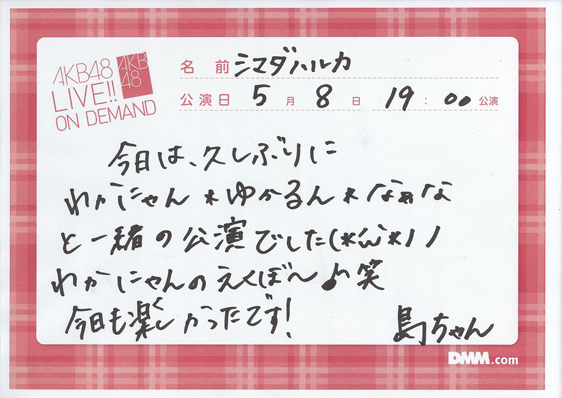 AKB48
LIVE!!
ON DEMAND
AKB
48
名前 シマダハルカ
公演日 5月8日 19:00公演
今日は、久しぶりに
わかにゃん*ゆかるん*なぁな
と一緒の公演でした(*'ω'*)ノ
わかにゃんのえくぼ〜♪笑
今日も楽しかったです!
島ちゃん
DMM.com